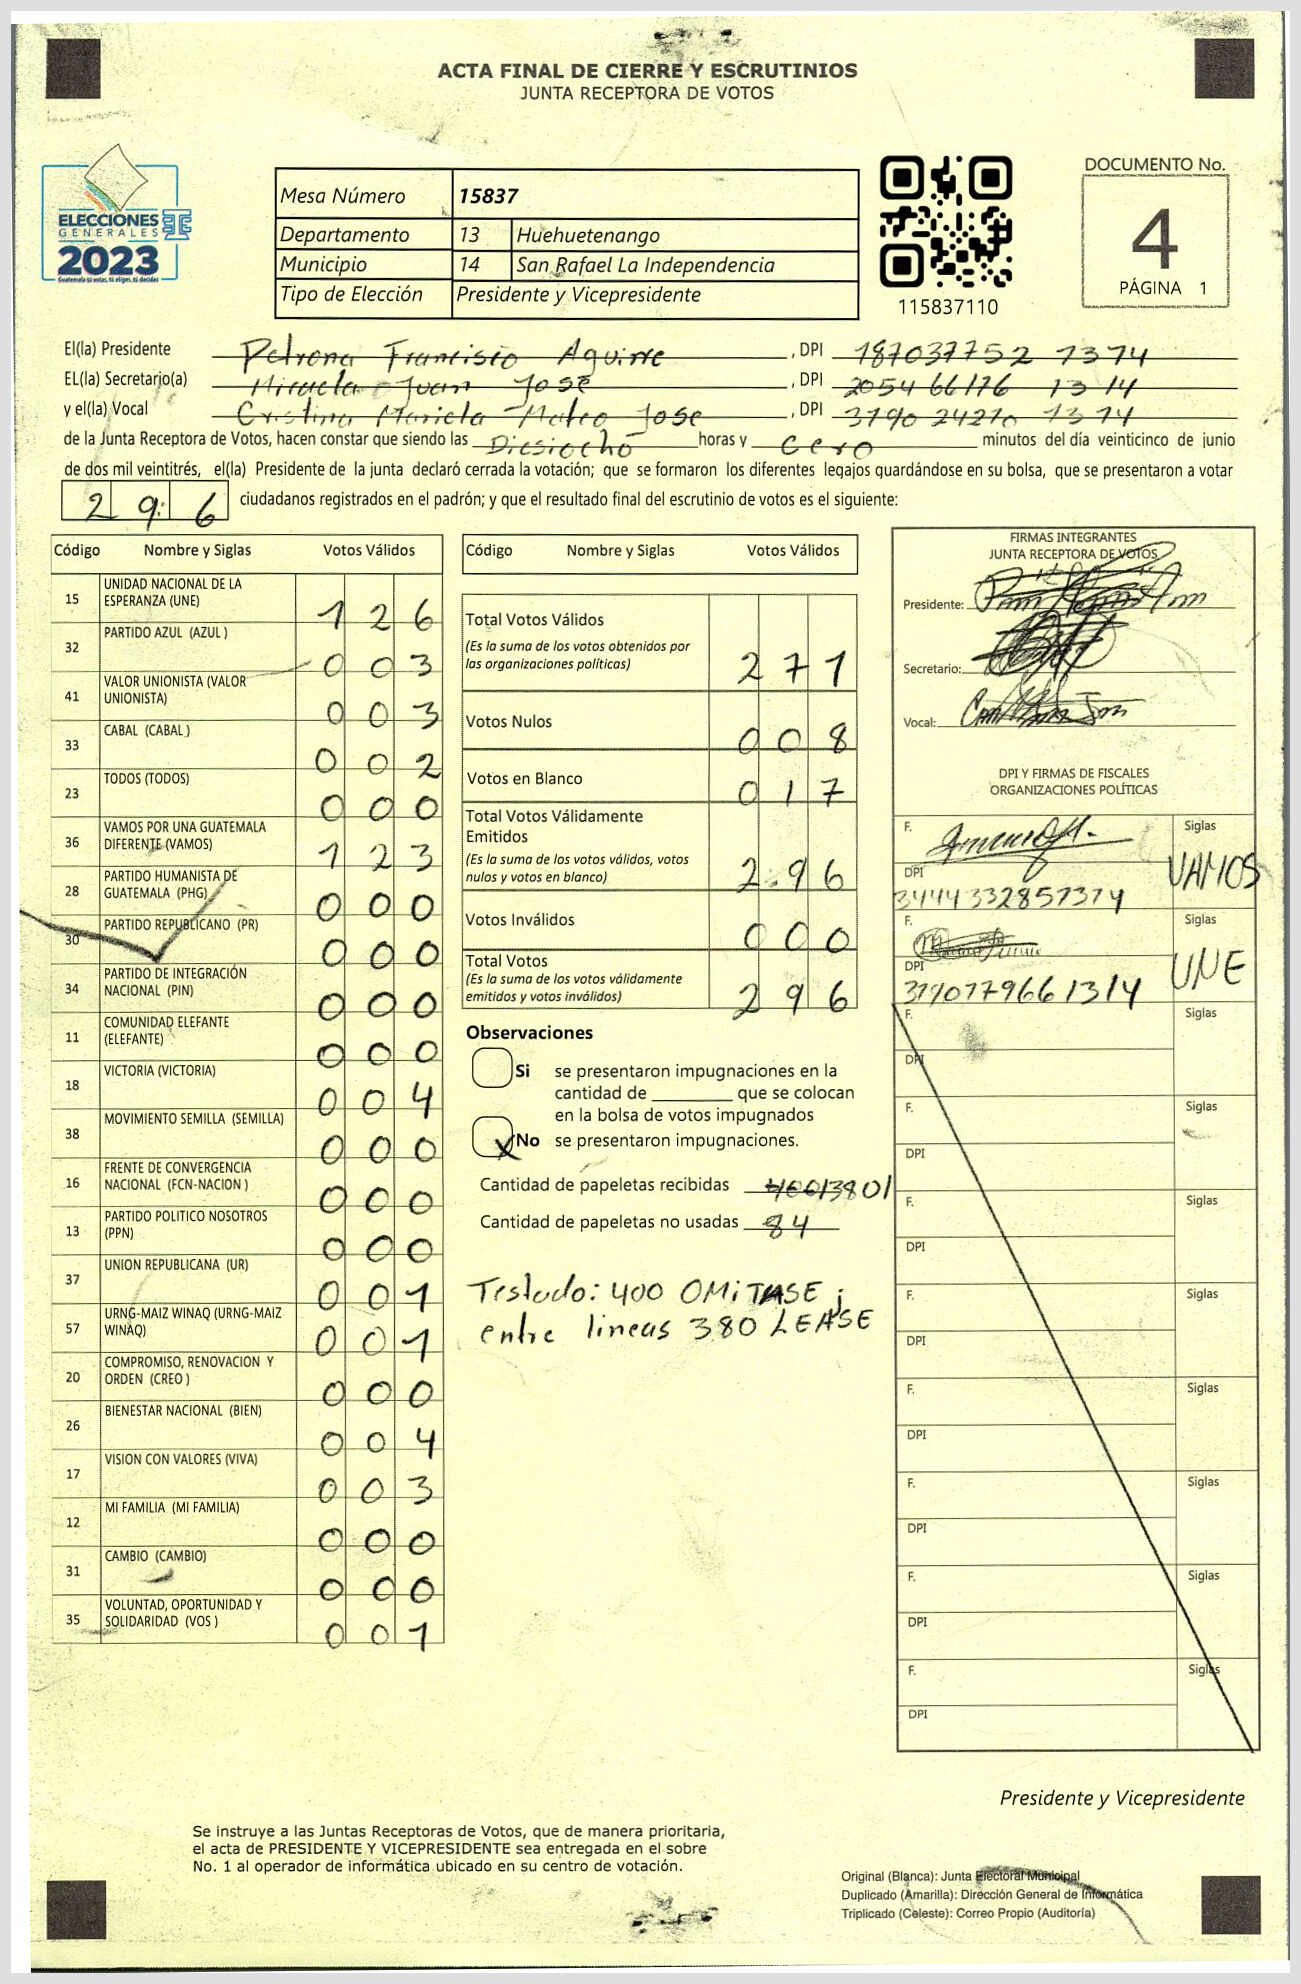 ACTA FINAL DE CIERRE Y ESCRUTINIOS
JUNTA RECEPTORA DE VOTOS
ELECCIONES
GENERALES
2023
Guatemala tú votas, tú eliges, tú decides
Mesa Número 15837
Departamento 13 Huehuetenango
Municipio 14 San Rafael La Independencia
Tipo de Elección Presidente y Vicepresidente
115837110
DOCUMENTO No.
4
PÁGINA 1
El(la) Presidente Petrona Francisco Aguirre, DPI 187037752 1314
EL(la) Secretario(a) Micaela Juan José, DPI 2054 66176 1314
y el(la) Vocal Cristina Mariela Mateo Jose, DPI 3190 24270 1314
de la Junta Receptora de Votos, hacen constar que siendo las Diesiocho horas y cero minutos del día veinticinco de junio
de dos mil veintitrés, el(la) Presidente de la junta declaró cerrada la votación; que se formaron los diferentes legajos guardándose en su bolsa, que se presentaron a votar
296 ciudadanos registrados en el padrón; y que el resultado final del escrutinio de votos es el siguiente:
Código Nombre y Siglas Votos Válidos
15 UNIDAD NACIONAL DE LA
ESPERANZA (UNE) 1 2 6
32 PARTIDO AZUL (AZUL ) 0 0 3
41 VALOR UNIONISTA (VALOR
UNIONISTA) 0 0 3
33 CABAL (CABAL ) 0 0 2
23 TODOS (TODOS) 0 0 0
36 VAMOS POR UNA GUATEMALA
DIFERENTE (VAMOS) 1 2 3
28 PARTIDO HUMANISTA DE
GUATEMALA (PHG) 0 0 0
30 PARTIDO REPUBLICANO (PR) 0 0 0
34 PARTIDO DE INTEGRACIÓN
NACIONAL (PIN) 0 0 0
11 COMUNIDAD ELEFANTE
(ELEFANTE) 0 0 0
18 VICTORIA (VICTORIA) 0 0 4
38 MOVIMIENTO SEMILLA (SEMILLA) 0 0 0
16 FRENTE DE CONVERGENCIA
NACIONAL (FCN-NACION ) 0 0 0
13 PARTIDO POLITICO NOSOTROS
(PPN) 0 0 0
37 UNION REPUBLICANA (UR) 0 0 1
57 URNG-MAIZ WINAQ (URNG-MAIZ
WINAQ) 0 0 1
20 COMPROMISO, RENOVACION Y
ORDEN (CREO ) 0 0 0
26 BIENESTAR NACIONAL (BIEN) 0 0 4
17 VISION CON VALORES (VIVA) 0 0 3
12 MI FAMILIA (MI FAMILIA) 0 0 0
31 CAMBIO (CAMBIO) 0 0 0
35 VOLUNTAD, OPORTUNIDAD Y
SOLIDARIDAD (VOS ) 0 0 1
Código Nombre y Siglas Votos Válidos
Total Votos Válidos
(Es la suma de los votos obtenidos por
las organizaciones políticas) 2 7 1
Votos Nulos 0 0 8
Votos en Blanco 0 1 7
Total Votos Válidamente
Emitidos
(Es la suma de los votos válidos, votos
nulos y votos en blanco) 2 9 6
Votos Inválidos 0 0 0
Total Votos
(Es la suma de los votos válidamente
emitidos y votos inválidos) 2 9 6
Observaciones
Si se presentaron impugnaciones en la
cantidad de ________ que se colocan
en la bolsa de votos impugnados
X No se presentaron impugnaciones.
Cantidad de papeletas recibidas 400/380/
Cantidad de papeletas no usadas 84
Testado: 400 OMITASE j
entre lineas 380 LEASE
FIRMAS INTEGRANTES
JUNTA RECEPTORA DE VOTOS
Presidente:
Secretario:
Vocal:
DPI Y FIRMAS DE FISCALES
ORGANIZACIONES POLÍTICAS
F. Siglas
VAMOS
DPI
3444332857374
F. Siglas
UNE
DPI
3190779661314
F. Siglas
DPI
F. Siglas
DPI
F. Siglas
DPI
F. Siglas
DPI
F. Siglas
DPI
F. Siglas
DPI
F. Siglas
DPI
F. Siglas
DPI
Presidente y Vicepresidente
Se instruye a las Juntas Receptoras de Votos, que de manera prioritaria,
el acta de PRESIDENTE Y VICEPRESIDENTE sea entregada en el sobre
No. 1 al operador de informática ubicado en su centro de votación.
Original (Blanca): Junta Electoral Municipal
Duplicado (Amarilla): Dirección General de Informática
Triplicado (Celeste): Correo Propio (Auditoría)